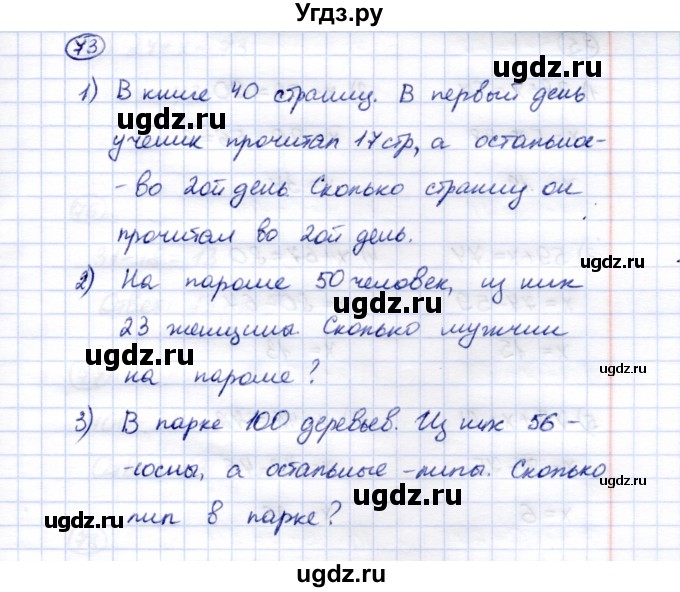 Угдз.ру
73
1) В книге 40 страниц. В первый день
ученик прочитал 17 стр, а остальное-
-во 2ой день. Сколько страниц он
прочитал во 2ой день.
2) На пароме 50 человек, из них
23 женщины. Сколько мужчин
на пароме?
3) В парке 100 деревьев. Из них 56 -
-сосны, а остальные -липы. Сколько
лип в парке?
ugdz.ru
ugdz.ru
ugdz.ru
ugdz.ru
ugdz.ru
ugdz.ru
ugdz.ru
ugdz.ru
ugdz.ru
ugdz.ru